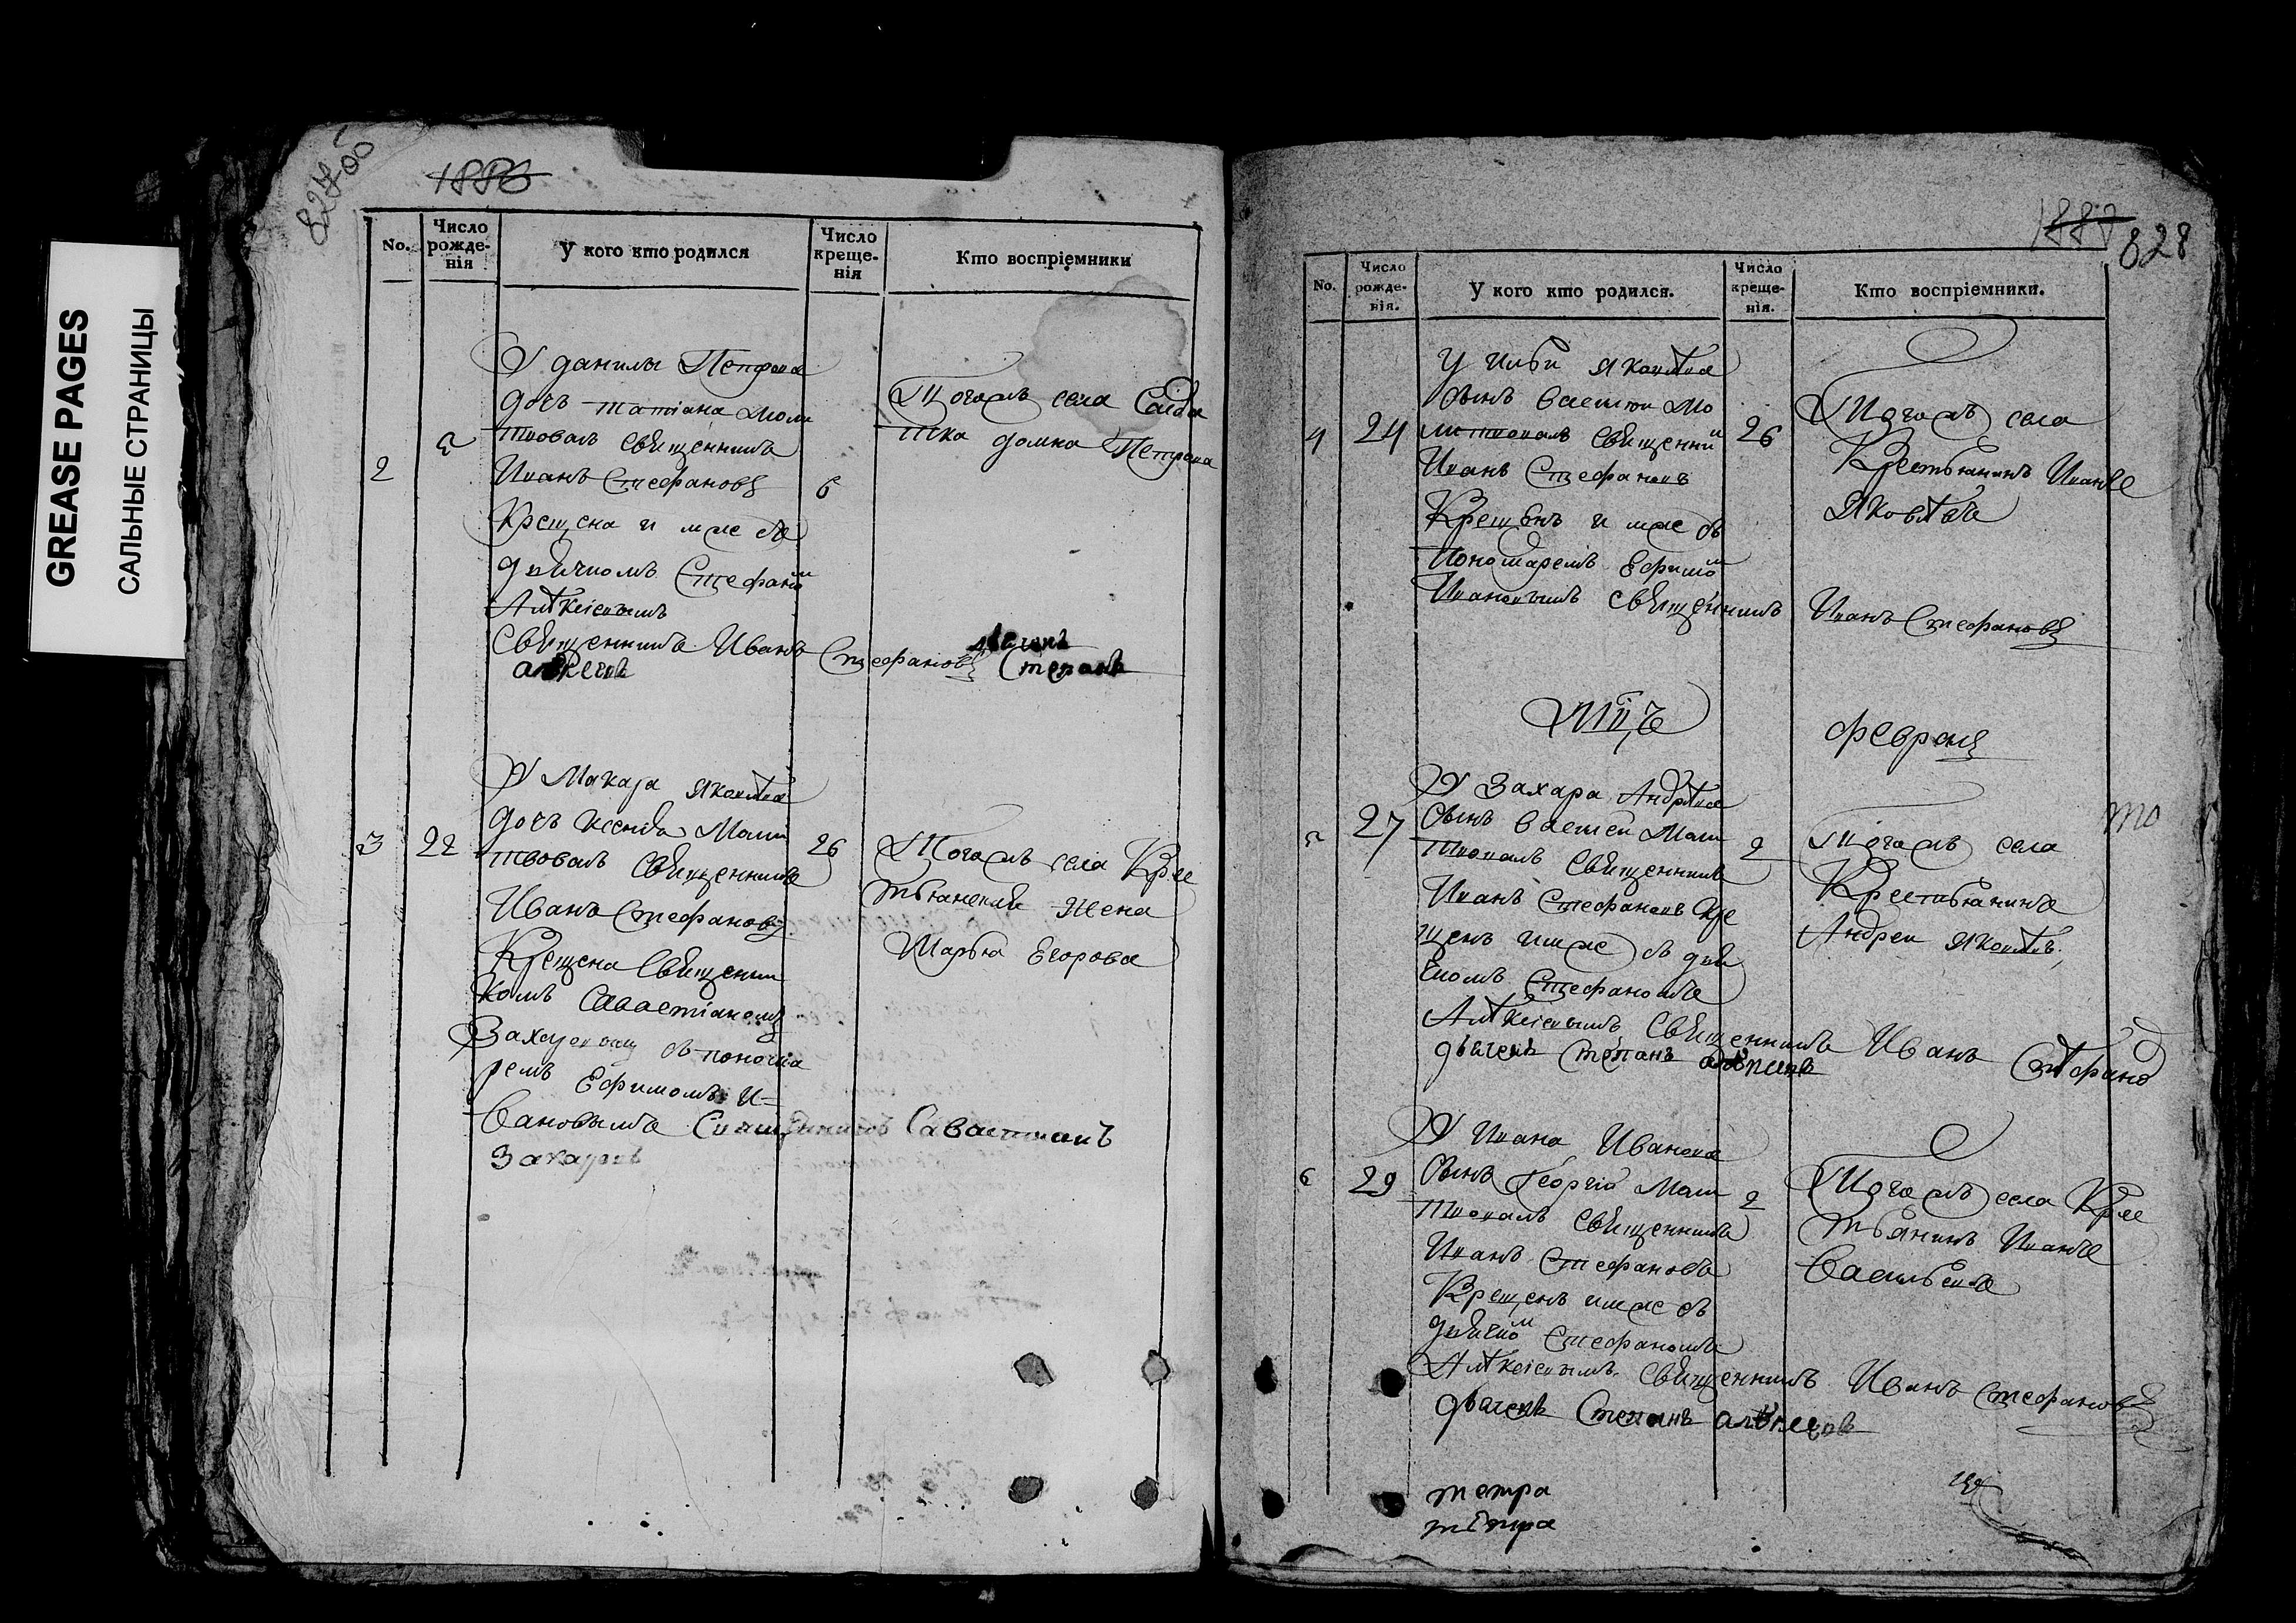 GREASE PAGES
САЛЬНЫЕ СТРАНИЦЫ
827об
1886
No.
Число рожденія
У кого кто родился
Число крещенія
Кто воспріемники
У данилы Петрова
дочь татіана моли
2 5 твовалъ священникъ
Иванъ Стефановъ 6
Крещена и мже съ
дьячкомъ Стефаном
Алѣксіевымъ
Священникъ Иванъ Стефановъ дьячекъ Степанъ
алѣксеевъ
Тогожъ села
домна Петрова
У Макара Яковлѣва
дочь Ксенія Моли
3 22 твовалъ священникъ 26
Иванъ Стефановъ
Крещена священни
комъ Савастіаномъ
Захаровымъ съ понома
ремъ Ефимомъ И=
вановымъ Священникъ Савастианъ
Захаровъ
Тогожъ села Крес
тьянская Жена
Марья Егорова
1887
828
No.
Число рожденія.
У кого кто родился.
Число крещенія.
Кто воспріемники.
У Яковлѣва
сынъ василій мо
4 24 литвовалъ священни 26
Иванъ Стефановъ
Крещенъ и мже съ
пономаремъ Ефимом
Ивановымъ священникъ Иванъ Стефановъ
Тогожъ села
Крестьянинъ Иванъ
Яковлѣвъ
Мцъ февраля
У Захара Андрѣева
5 27 сынъ василей Моли 2
твовалъ священникъ
Иванъ Стефановъ Кре
щенъ имже съ дья
чкомъ Стефаномъ
Алѣксіевымъ Священникъ Иванъ Стѣфанов
дьячекъ Степанъ алѣксеевъ
Тогожъ села
Крестьянинъ
Андрей Яковлѣвъ
то
У Ивана Иванова
6 29 сынъ Георгій Моли 2
твовалъ священникъ
Иванъ Стефановъ
Крещенъ имже съ
дьячком Стефаномъ
Алѣксіевымъ священникъ Иванъ Стефановъ
дьячекъ Степанъ алѣксеевъ
Тогожъ села Крес
тьянинъ Иванъ
Васильевъ